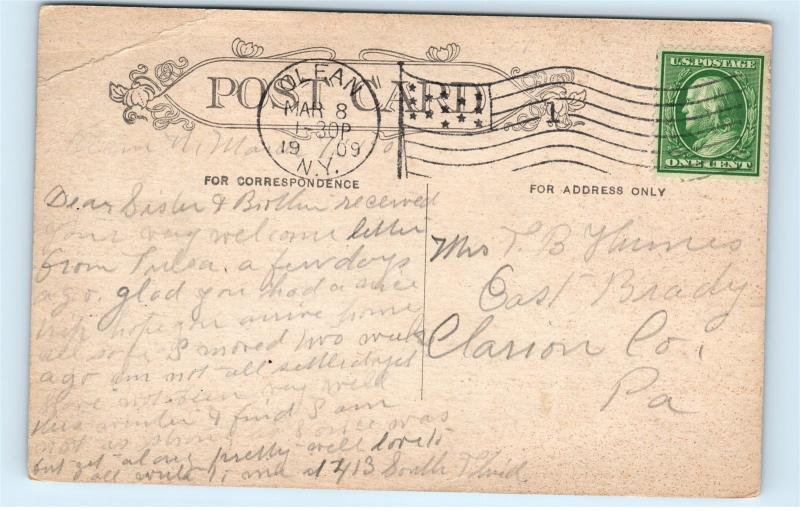 POST CARD
OLEAN
MAR 8
1-30P
19 09
N.Y.
1
U.S. POSTAGE
ONE CENT
FOR CORRESPONDENCE
FOR ADDRESS ONLY
Olean N.
Dear Sister & Brother received
your very welcome letter
from Tulsa a few days
ago. glad you had a nice
trip hope you arrive home
all safe I moved two weeks
ago am not all settled yet
have not been very well
this winter & find I am
not as strong I once was
but get along pretty well love to
all write to me at 413 South Third
Mrs T. B
East Brady
Clarion Co.
Pa